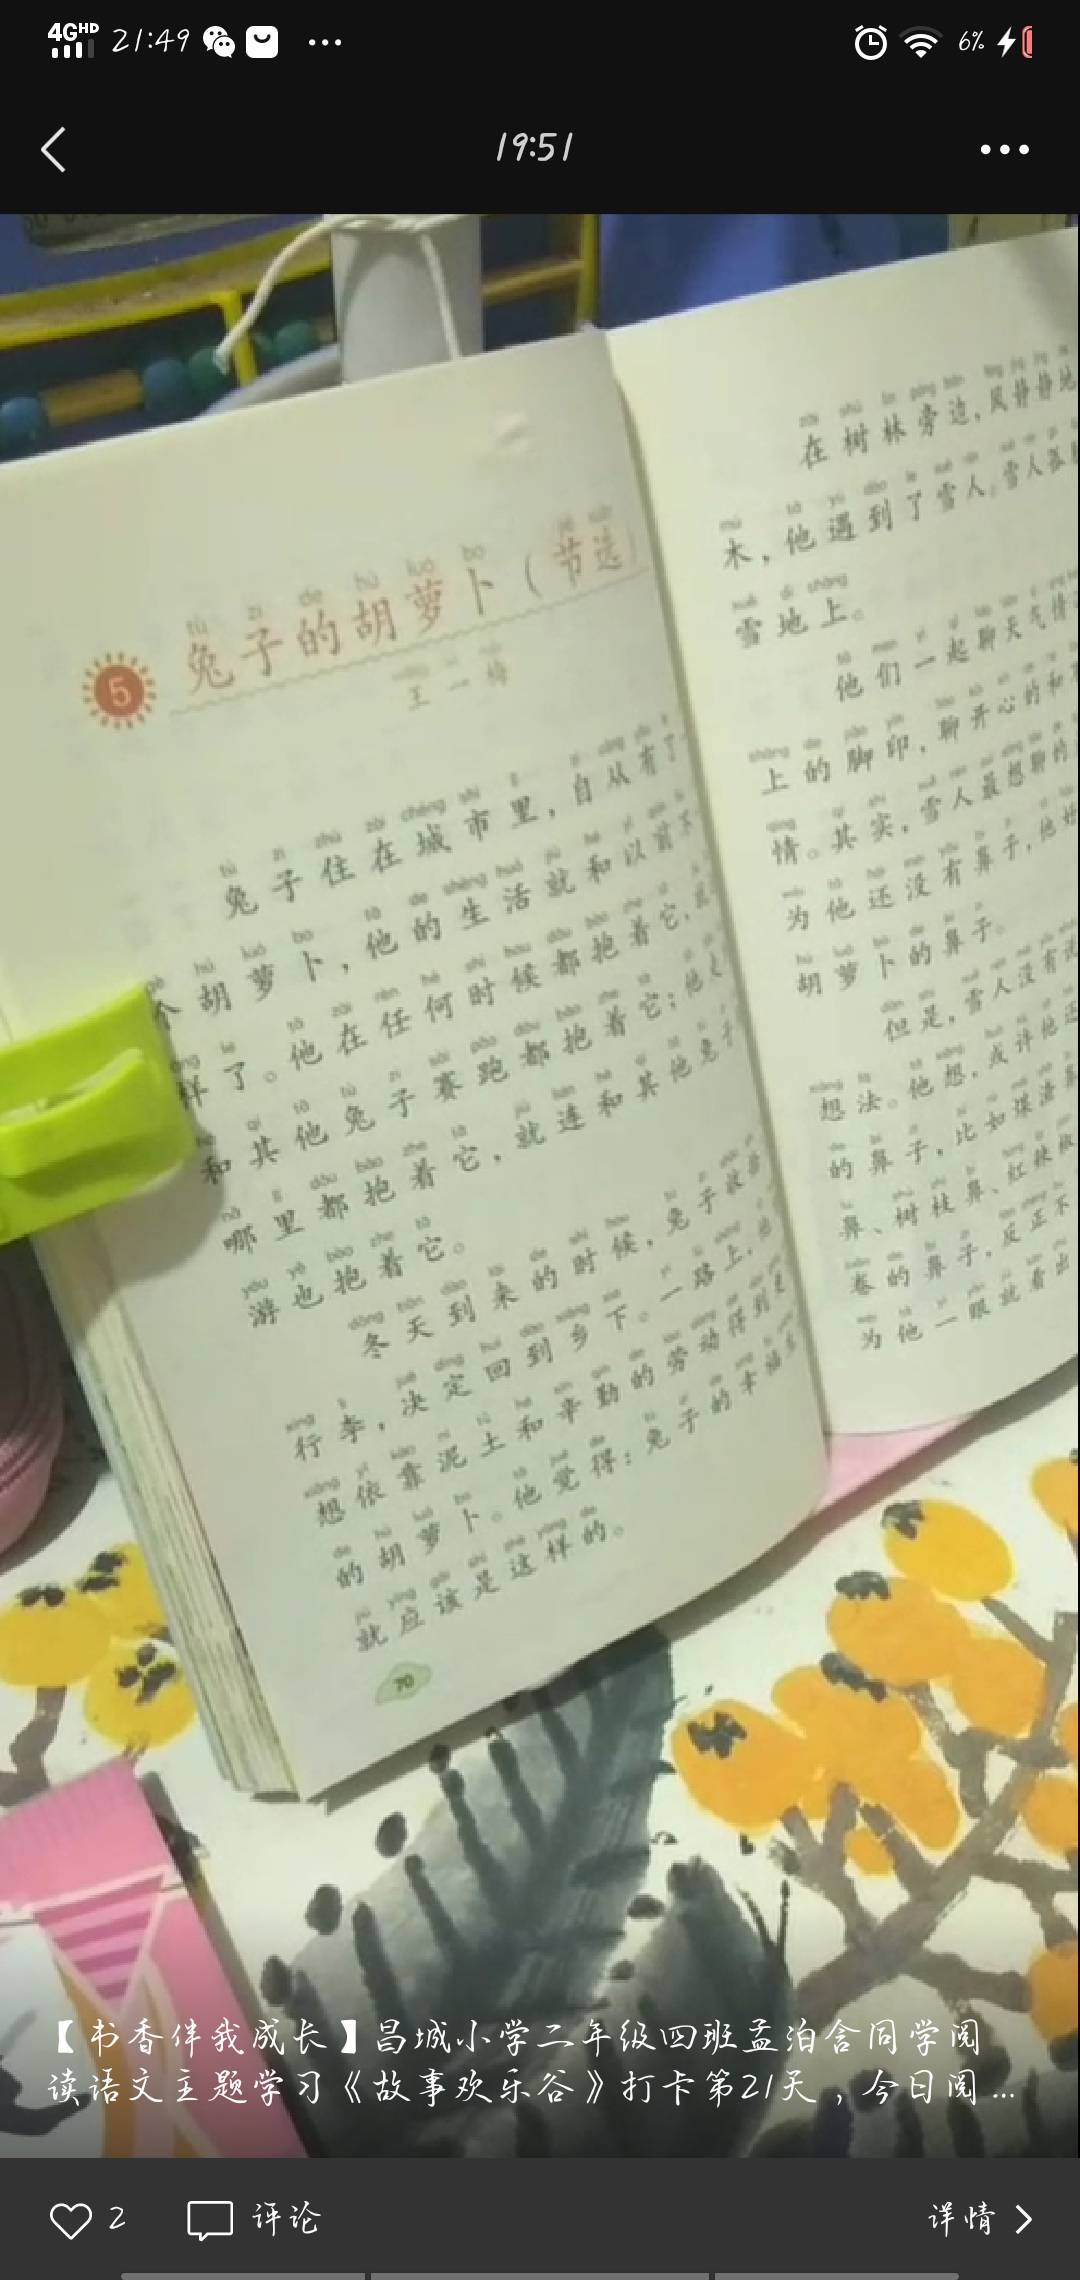 4G HD 21:49
6%
19:51
5 兔子的胡萝卜（节选）
王一梅
兔子住在城市里，自从有了
个胡萝卜，他的生活就和以前不
样了。他在任何时候都抱着它，
和其他兔子赛跑都抱着它；他
哪里都抱着它，就连和其他兔子
游也抱着它。
冬天到来的时候，兔子收拾
行李，决定回到乡下。一路上，他
想依靠泥土和辛勤的劳动得到更
的胡萝卜。他觉得：兔子的幸福
就应该是这样的。
70
在树林旁边，风静静地
木，他遇到了雪人。雪人
雪地上。
他们一起聊天气情
上的脚印，聊开心的和不
情。其实，雪人最想聊的
为他还没有鼻子，他
胡萝卜的鼻子。
但是，雪人没有说
想法。他想，或许他还
的鼻子，比如煤渣鼻
鼻、树枝鼻、红辣椒
卷的鼻子，反正不
为他一眼就看出
【书香伴我成长】昌城小学二年级四班孟泊含同学阅
读语文主题学习《故事欢乐谷》打卡第21天，今日阅...
2 评论 详情